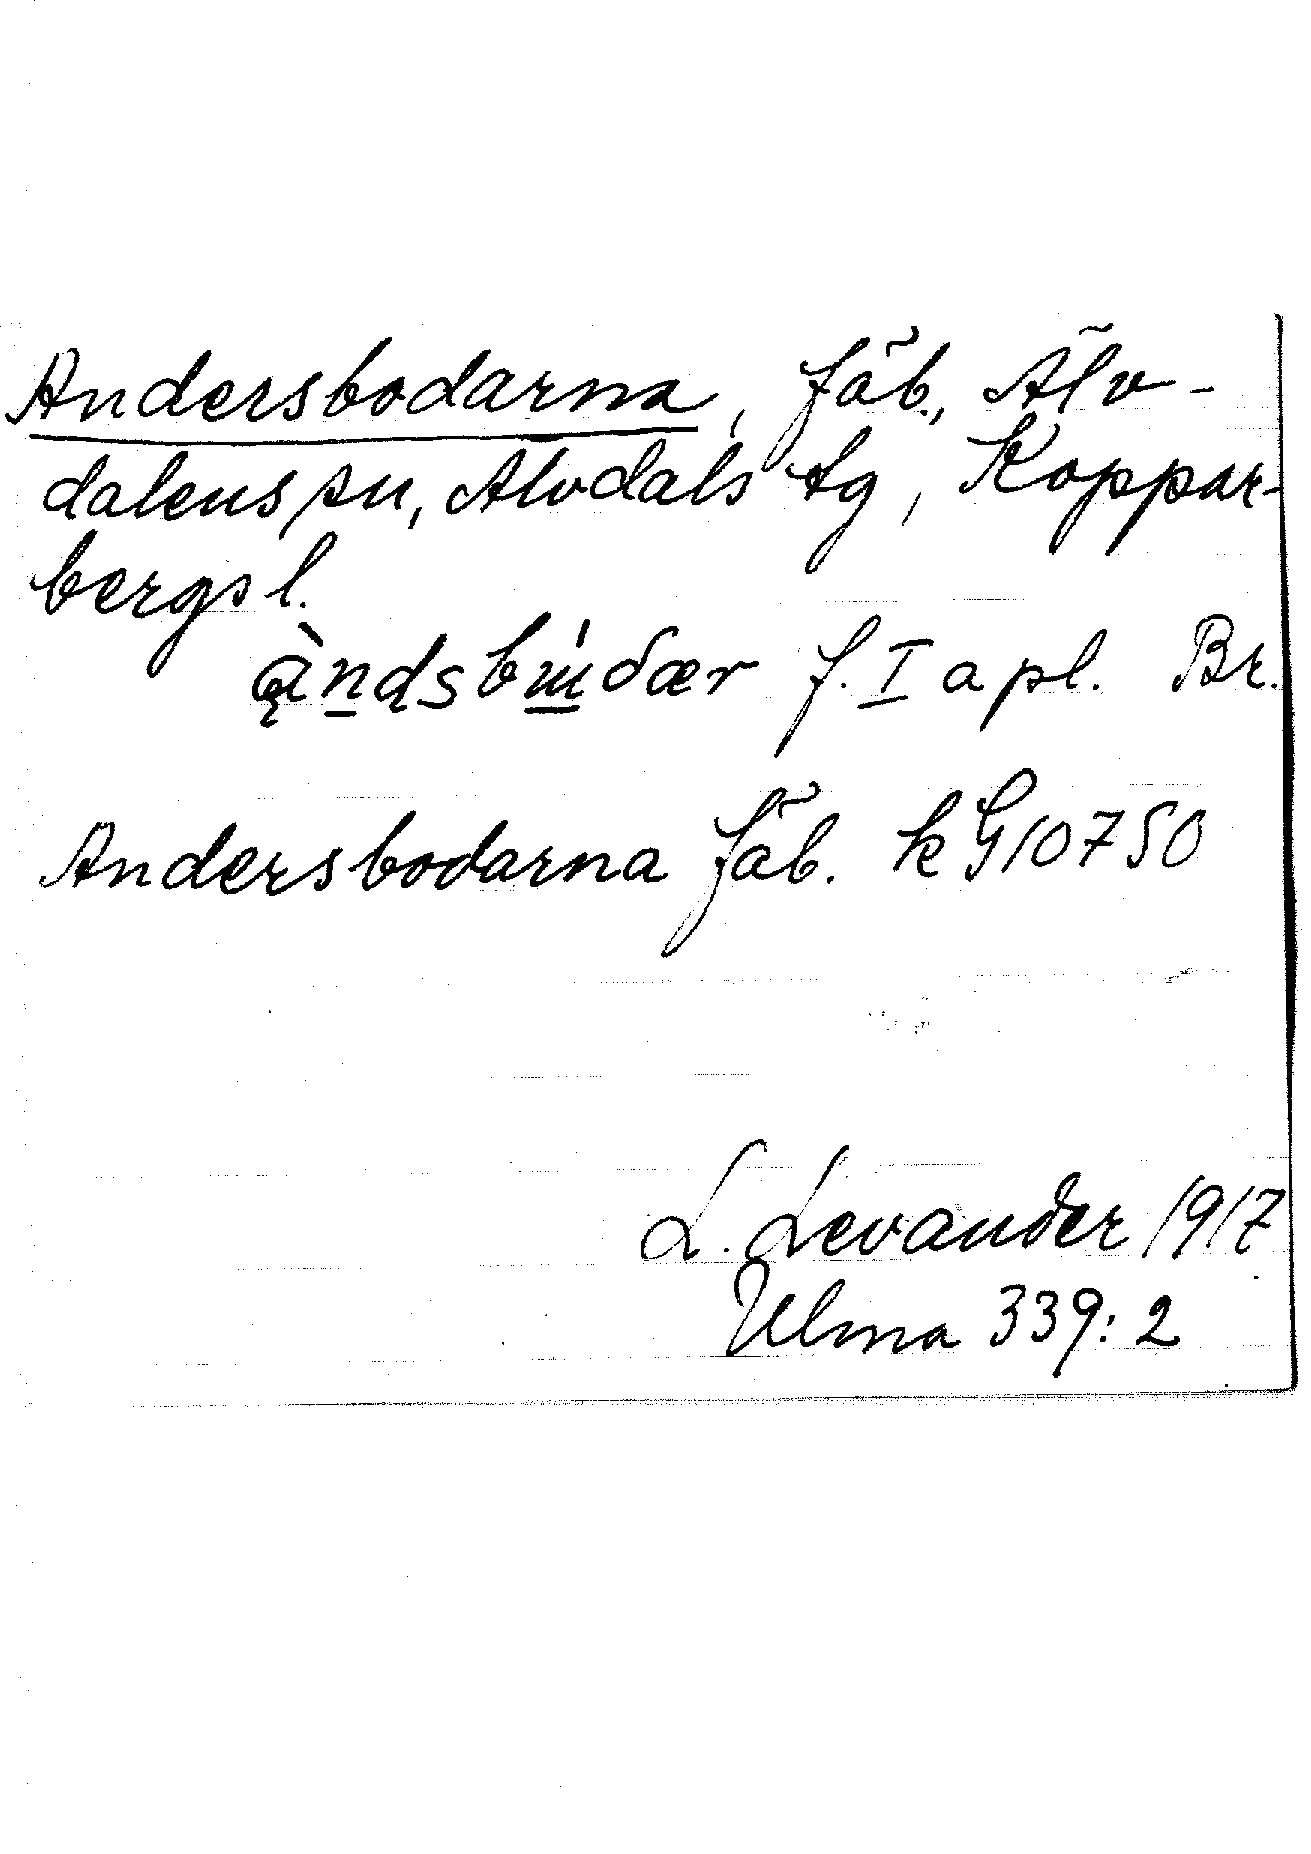 Andersbodarna, fäb., Älv-
dalens sn, Älvdals tg, Koppar-
bergs l.
f. I a pl. Br.
Andersbodarna fäb. k G10750
L. Levander 1917
Ulma 339:2